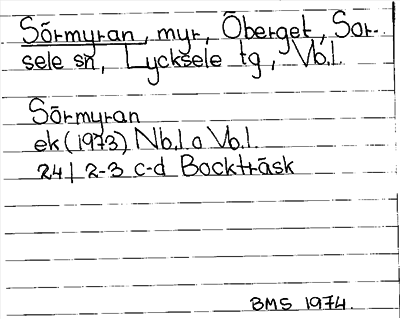 Sörmyran, myr, Öberget, Sor-
sele sn, Lycksele tg, Vb.l.
Sörmyran
ek (1973) Nb.l o Vb.l.
24I 2-3 c-d Bockträsk
BMS 1974.